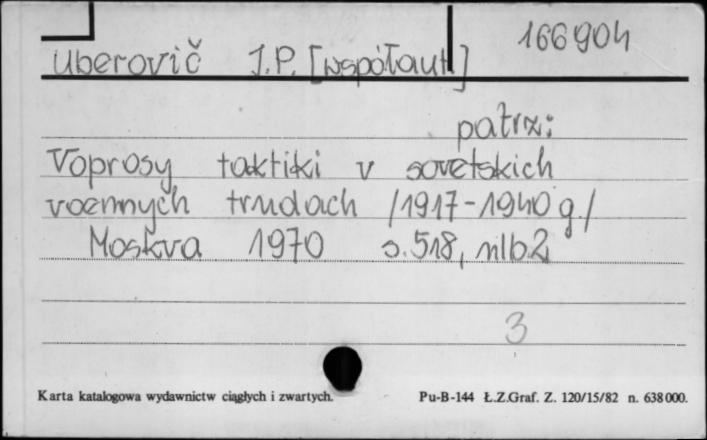 166904
Uberovič J.P. [współaut.]
patrz:
Voprosy taktiki v sovetskich
voennych trudach /1917-1940 g./
Moskva 1970 s.518, nlb.2
3
Karta katalogowa wydawnictw ciągłych i zwartych. Pu-B-144 Ł.Z.Graf. Z. 120/15/82 n. 638000.